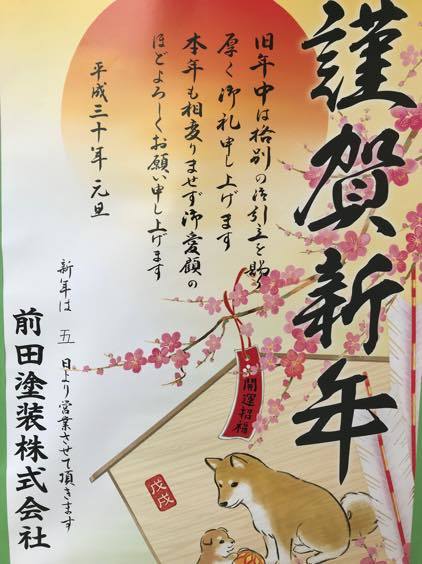 謹賀新年
旧年中は格別の御引立を賜り
厚く御礼申し上げます
本年も相変りませず御愛顧の
ほどよろしくお願い申し上げます
平成三十年 元旦
新年は 五 日より営業させて頂きます
前田塗装株式会社
開運招福
戊戌